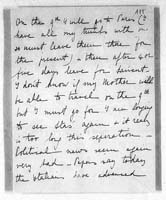 On the 9th I will go to Paris (I
have all my trunks with me
so must leave them there for
the present) & then after 4 or
five days leave for
I don't know if my Mother will
be able to travel on the 9th
but I must go for I am longing
to see again - it really
too long this separation -
Political news seem again
very bad - Papers say today
the Italians have advanced